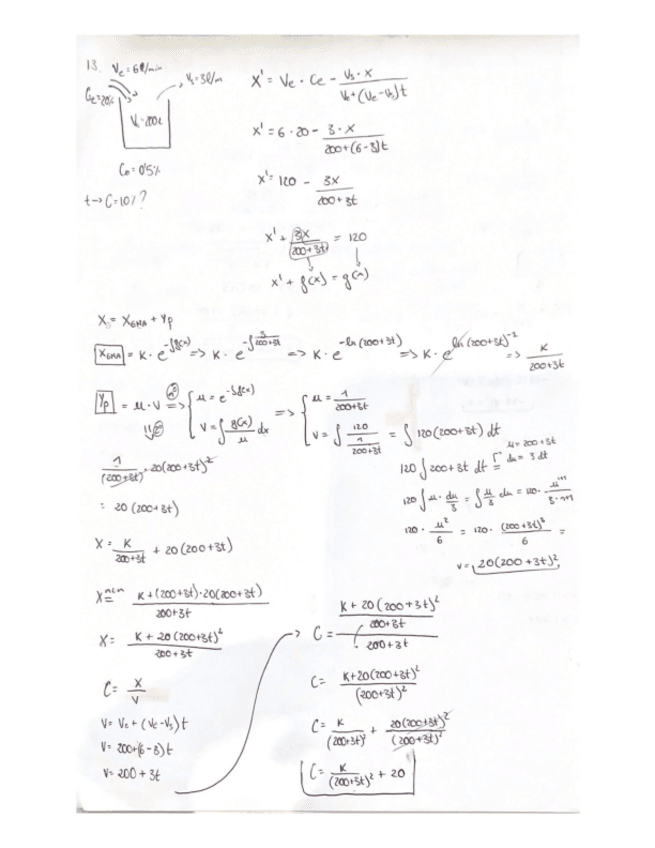 13. Ve = 6 l/min
Vs = 3 l/m
Ce = 20%
V₀ = 200 l
C₀ = 0'5%
t → C = 10%?
X' = Ve · Ce - Vs · X / V₀ + (Ve - Vs)t
X' = 6 · 20 - 3 · X / 200 + (6 - 3)t
X' = 120 - 3X / 200 + 3t
X' + 3X / 200 + 3t = 120
X' + f(x) = g(x)
X = X_GHA + Yp
X_GHA = K · e^-∫f(x) => K · e^-∫3/200+3t => K · e^-ln(200+3t) => K · e^ln(200+3t)^-1 => K / 200+3t
Yp = u · v => { u = e^-∫f(x) => { u = 1 / 200+3t
v = ∫ g(x) / u dx
v = ∫ 120 / (1 / 200+3t) = ∫ 120 (200+3t) dt
u = 200 + 3t
du = 3 dt
120 ∫ 200 + 3t dt =
120 ∫ u · du/3 = ∫ u/3 du = 120 · u^n+1 / 3 · n+1
120 · u² / 6 = 120 · (200+3t)² / 6 =
v = 20(200+3t)²
1 / (200+3t) · 20(200+3t)²
= 20 (200+3t)
X = K / 200+3t + 20(200+3t)
X = K + (200+3t) · 20(200+3t) / 200+3t
X = K + 20(200+3t)² / 200+3t
C = X / V
V = V₀ + (Ve - Vs)t
V = 200 + (6 - 3)t
V = 200 + 3t
C = (K + 20(200+3t)² / 200+3t) / 200+3t
C = K + 20(200+3t)² / (200+3t)²
C = K / (200+3t)² + 20(200+3t)² / (200+3t)²
C = K / (200+3t)² + 20